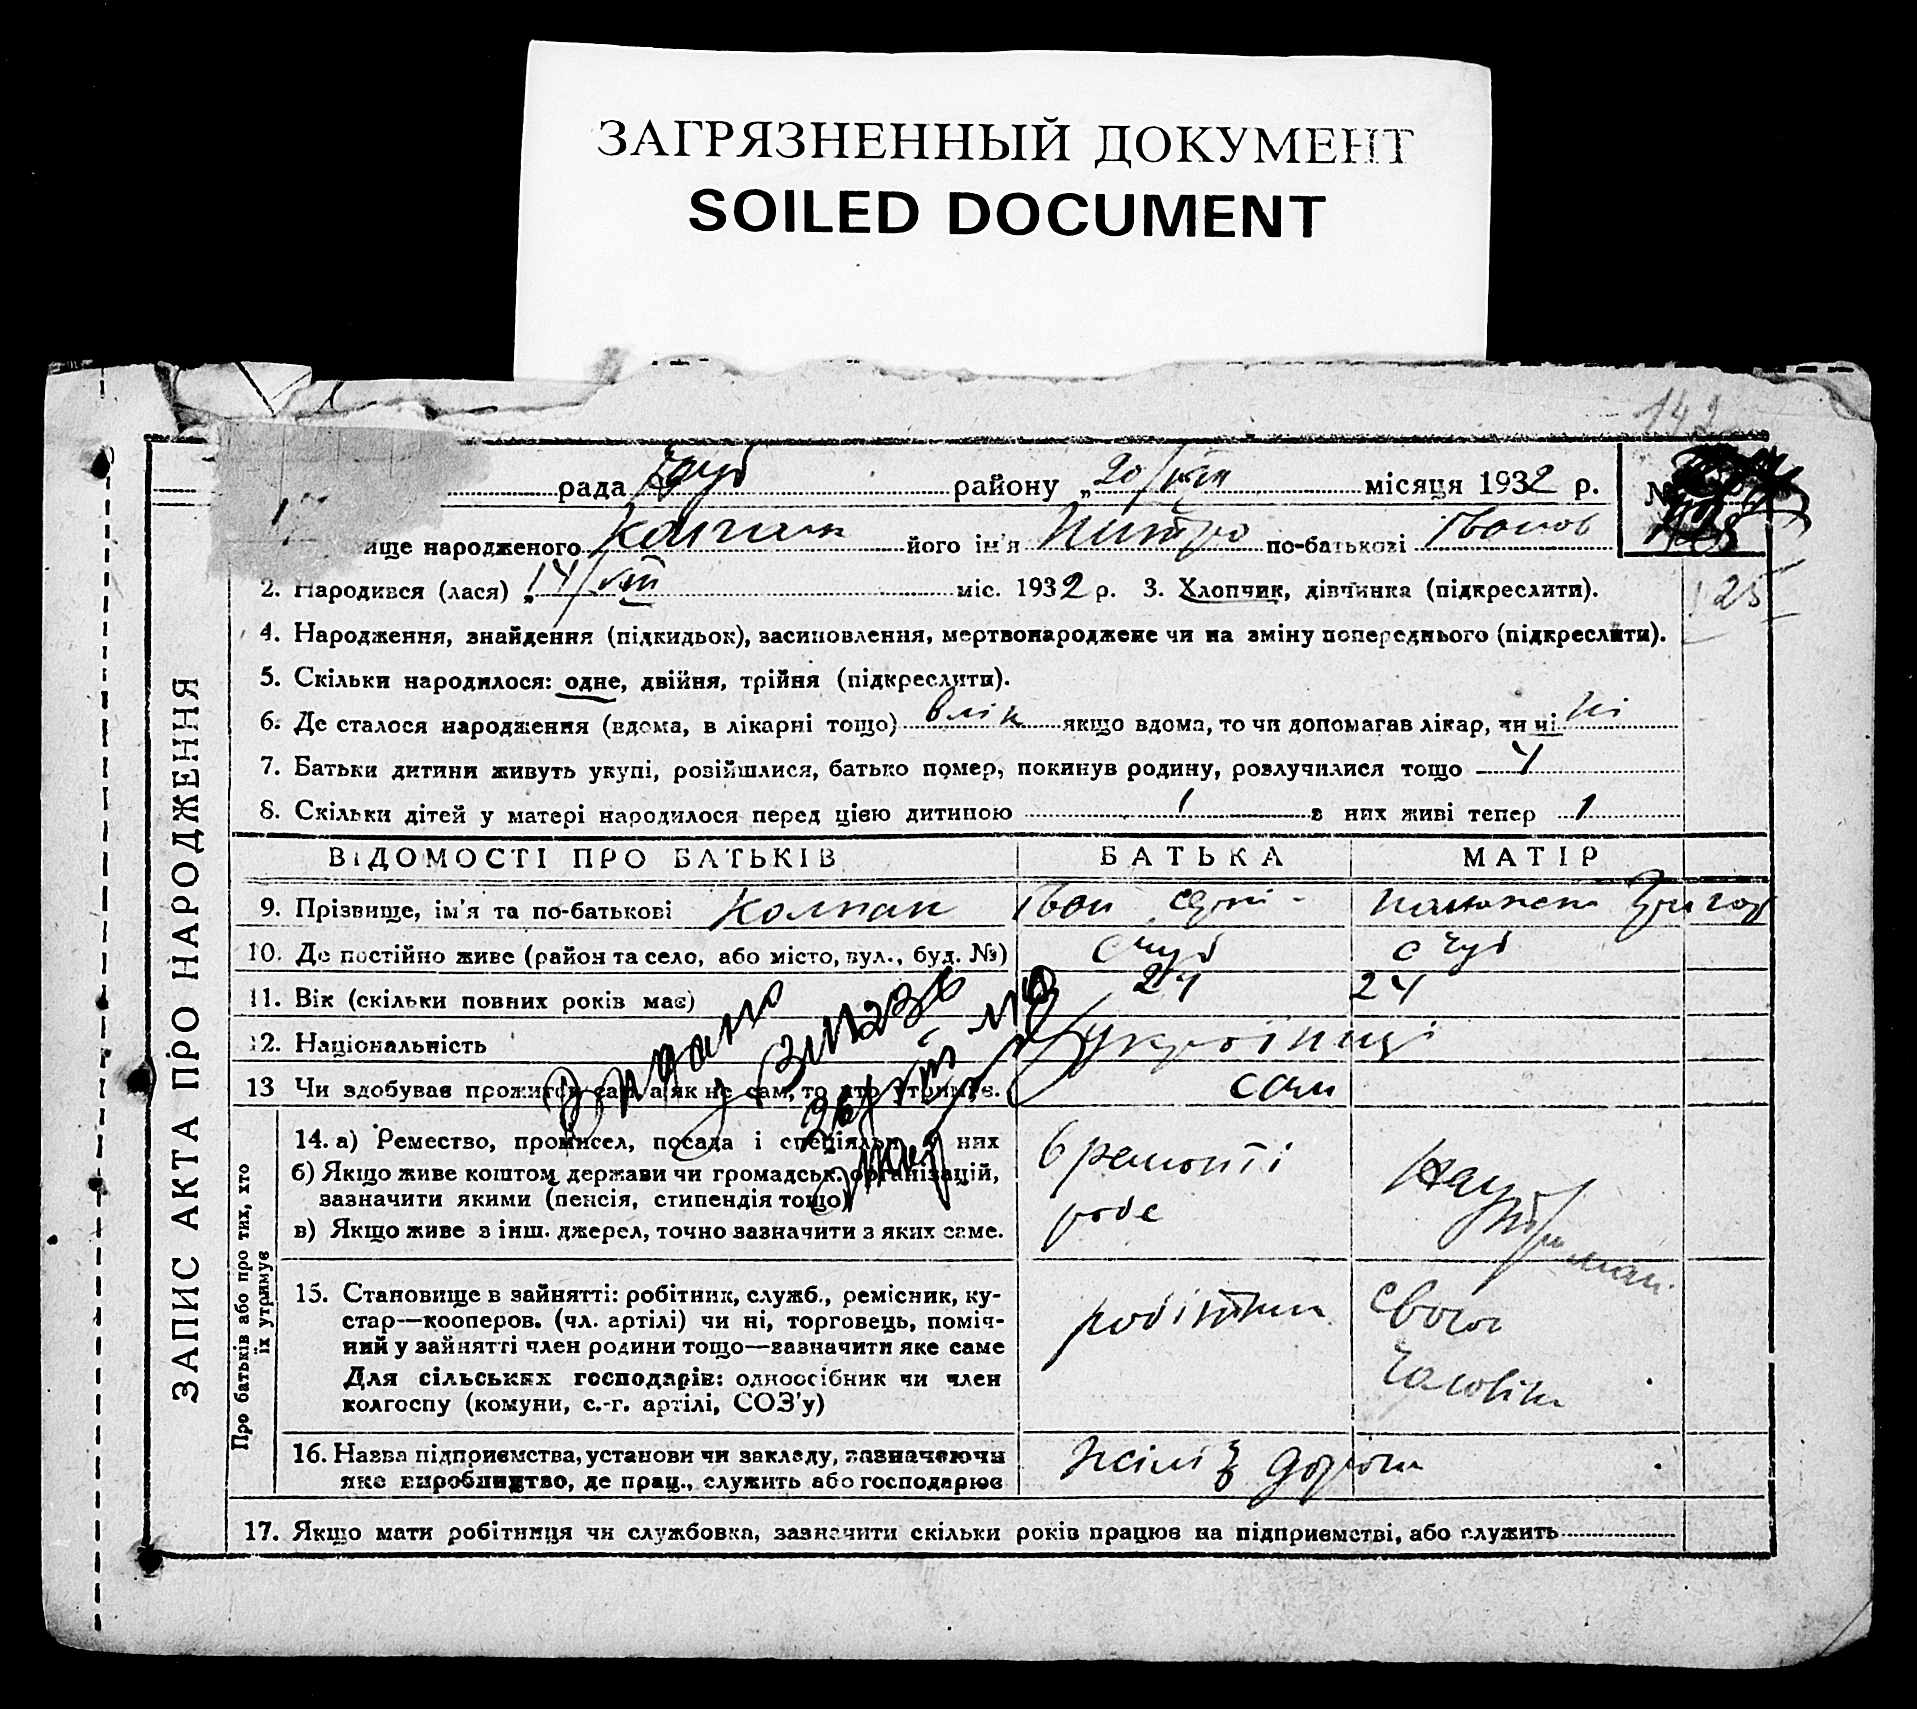 ЗАГРЯЗНЕННЫЙ ДОКУМЕНТ
SOILED DOCUMENT
ЗАПИС АКТА ПРО НАРОДЖЕННЯ
рада району „20/VIII місяця 1932 р. №
ище народженого Колпак його ім'я по-батькові Іванов
2. Народився (лася) „14/VIII міс. 1932 р. 3. Хлопчик, дівчинка (підкреслити).
125
4. Народження, знайдення (підкидьок), засиновлення, мертвонароджене чи на зміну попереднього (підкреслити).
5. Скільки народилося: одне, двійня, трійня (підкреслити).
6. Де сталося народження (вдома, в лікарні тощо) в лік якщо вдома, то чи допомагав лікар, чи ні ні
7. Батьки дитини живуть укупі, розійшлися, батько помер, покинув родину, розлучилися тощо у
8. Скільки дітей у матері народилося перед цією дитиною 1 з них живі тепер 1
ВІДОМОСТІ ПРО БАТЬКІВ БАТЬКА МАТІР
9. Прізвище, ім'я та по-батькові Колпак Іван
10. Де постійно живе (район та село, або місто, вул., буд. №)
11. Вік (скільки повних років має) 24 24
12. Національність українці
13 Чи здобуває прожиток сам, а як не сам, то хто утримує. сам
Про батьків або про тих, хто їх утримує
14. а) Ремество, промисел, посада і спеціяльн. у них
б) Якщо живе коштом держави чи громадськ. організацій,
зазначити якими (пенсія, стипендія тощо)
в) Якщо живе з інш. джерел, точно зазначити з яких саме.
15. Становище в зайнятті: робітник, служб., ремісник, ку-
стар—кооперов. (чл. артілі) чи ні, торговець, поміч-
ний у зайнятті член родини тощо—зазначити яке саме
Для сільських господарів: одноосібник чи член
колгоспу (комуни, с.-г. артілі, СОЗ'у)
робітник
свого
чоловіка
16. Назва підприємства, установи чи закладу, зазначаючи
яке виробництво, де прац., служить або господарює
17. Якщо мати робітниця чи службовка, зазначити скільки років працює на підприємстві, або служить